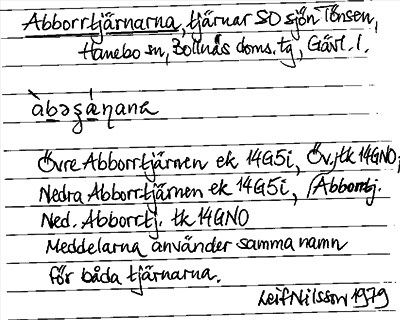 Abborrtjärnarna, tjärnar SO sjön Tönsen,
Hanebo sn, Bollnäs doms. tg, Gävl. l.
àbəʂǽɳana
Övre Abborrtjärnen ek 14G5i, Öv.,tk 14GNO,
Nedra Abborrtjärnen ek 14G5i, Abborrtj.
Ned. Abborrtj. tk 14GNO
Meddelarna använder samma namn
för båda tjärnarna.
Leif Nilsson 1979